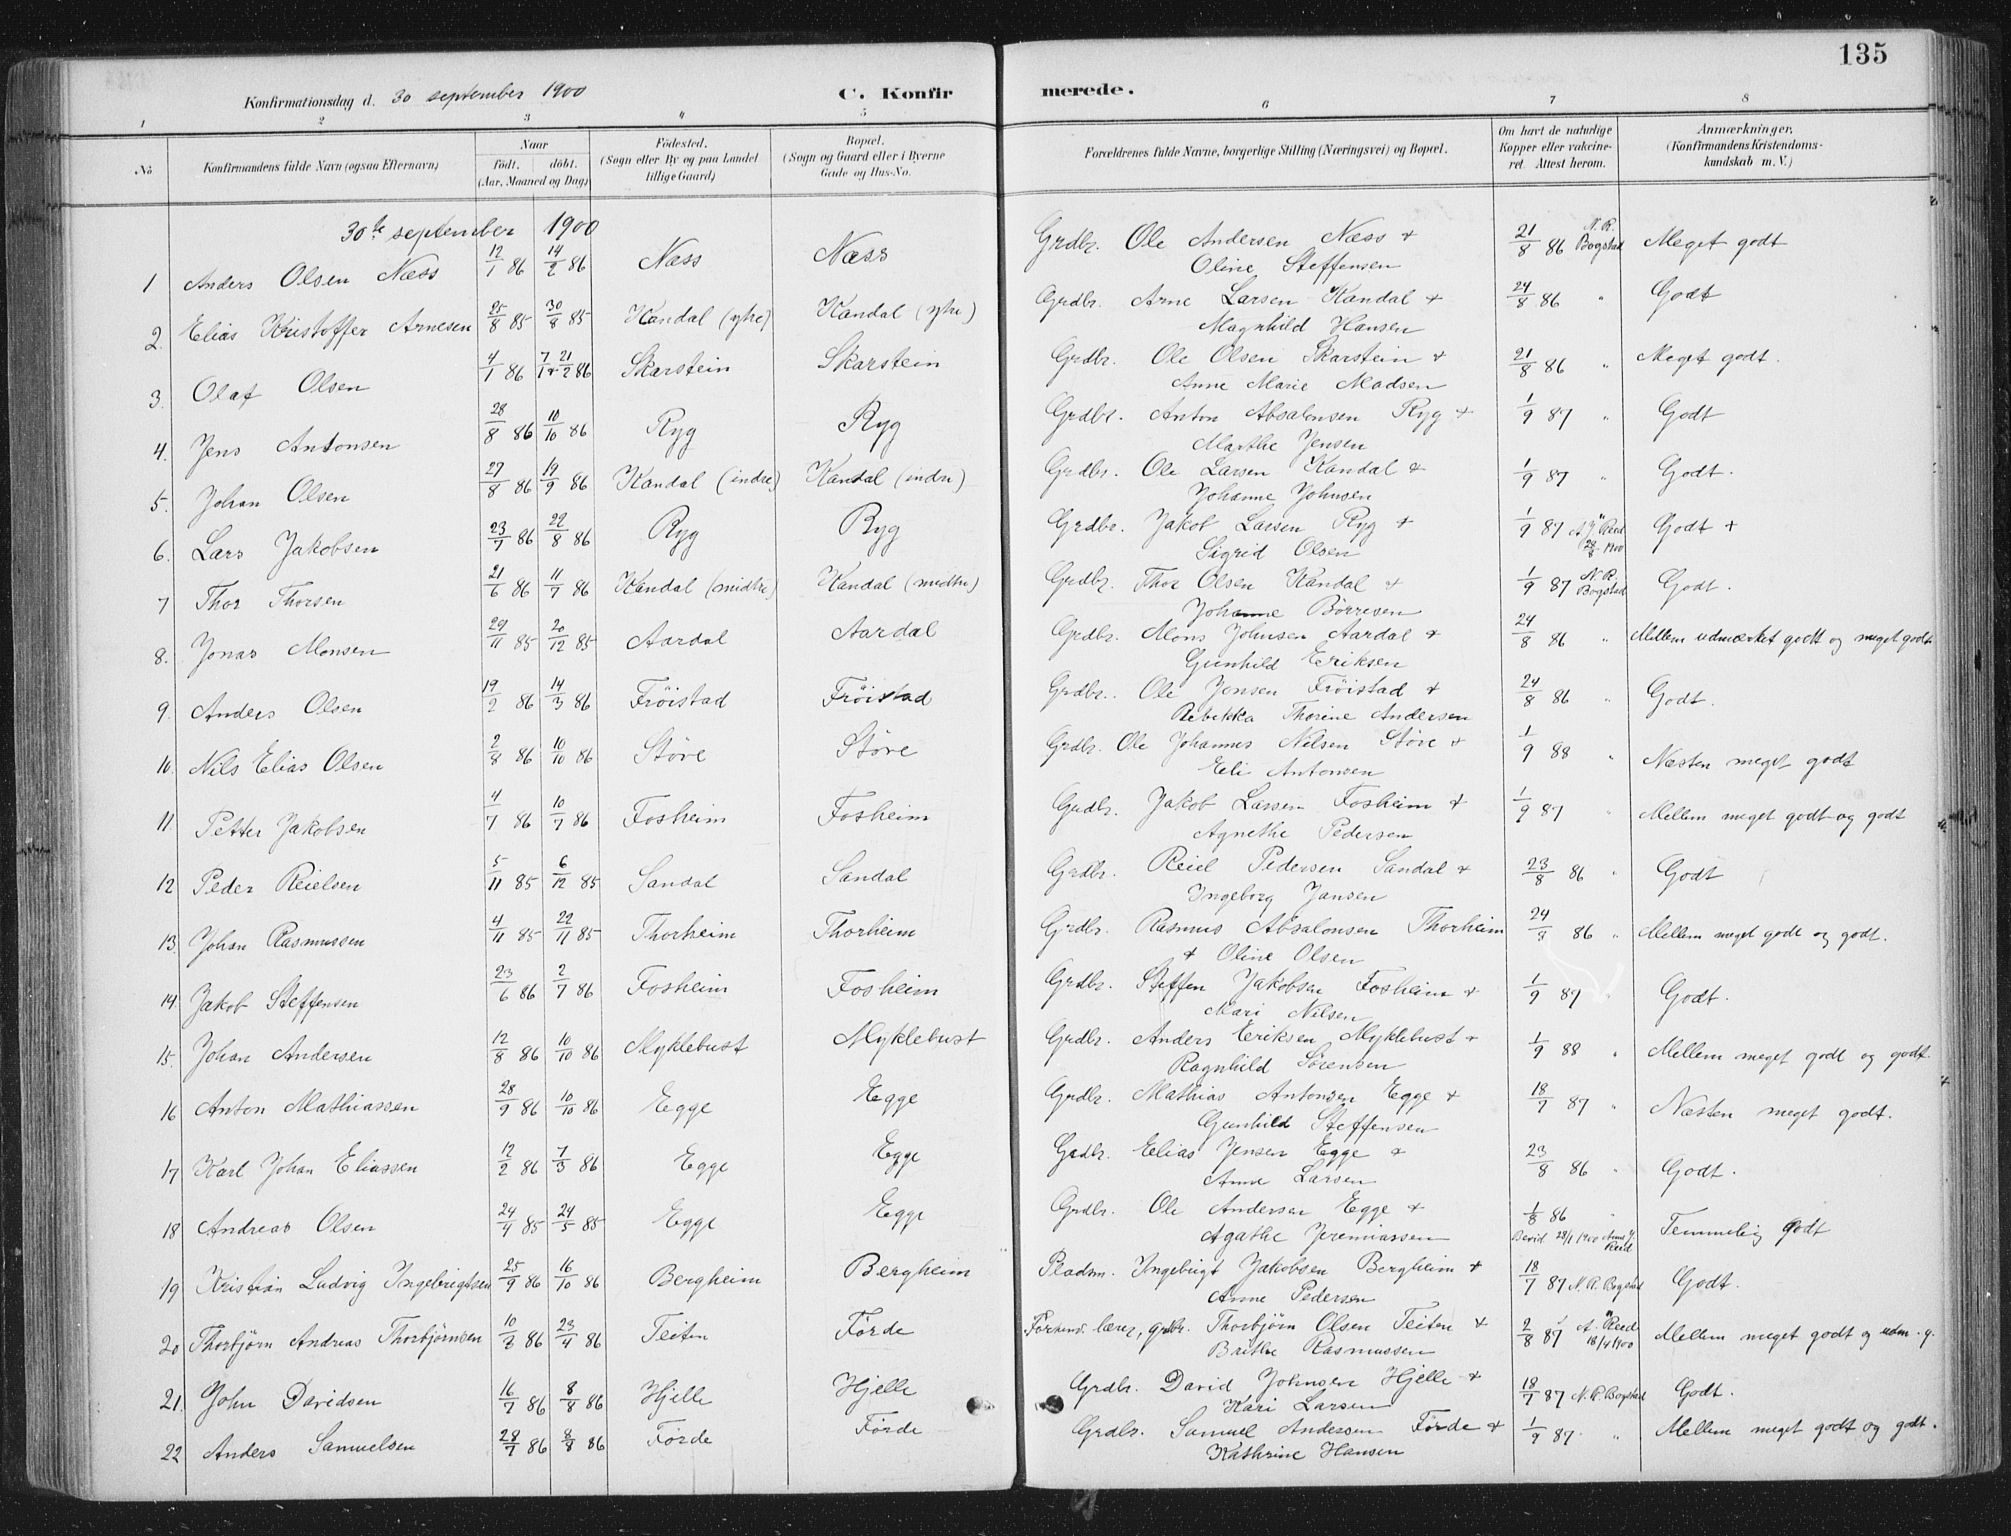 135
Konfirmationsdag d. 30 september 1900 C. Konfirmerede.
1 2 3 4 5 6 7 8
No Konfirmandens fulde Navn (ogsaa Efternavn) Naar födt. döbt. (Aar, Maaned og Dag) Födested. (Sogn eller By og paa Landet tillige Gaard) Bopæl. (Sogn og Gaard eller i Byerne Gade og Hus-No. Forældrenes fulde Navne, borgerlige Stilling (Næringsvei) og Bopæl. Om havt de naturlige Kopper eller vakcineret. Attest herom. Anmærkninger. (Konfirmandens Kristendomskundskab m. V.)
30te september 1900
1 Anders Olsen Næss 12/1 86 14/2 86 Næss Næss Grdbr. Ole Andersen Næss + Oline Steffensen 21/8 86 N. R. Bogstad Meget godt
2. Elias Kristoffer Arnesen 25/8 85 30/8 85 Kandal (ytre) Kandal (ytre) Grdbr. Arne Larsen Kandal + Magnhild Hansen 24/8 86 " Godt
3. Olaf Olsen 4/1 86 7/1 + 21/2 86 Skarstein Skarstein Grdbr. Ole Olsen Skarstein + Anne Marie Madsen 21/8 86 " Meget godt.
4. Jens Antonsen 28/8 86 10/10 86 Ryg Ryg Grdbr. Anton Absalonsen Ryg + Marthe Jensen 1/9 87 " Godt
5. Johan Olsen 27/8 86 19/9 86 Kandal (indre) Kandal (indre) Grdbr. Ole Larsen Kandal + Johanne Johnsen 1/9 87 " Godt.
6. Lars Jakobsen 23/7 86 22/8 86 Ryg Ryg Grdbr. Jakob Larsen Ryg + Sigrid Olsen 1/9 87 A. J. Reed 28/8 1900 Godt +
7 Thor Thorsen 21/6 86 11/7 86 Kandal (midtre) Kandal (midtre) Grdbr. Thor Olsen Kandal + Johanne Börresen 1/9 87 N. R. Bogstad Godt.
8. Jonas Monsen 29/11 85 20/12 85 Aardal Aardal Grdbr. Mons Johnsen Aardal + Gunhild Eriksen 24/8 86 " Mellem udmærket godt og meget godt.
9. Anders Olsen 19/2 86 14/3 86 Fröistad Fröistad Grdbr. Ole Jonsen Fröistad + Rebekka Thorine Andersen 24/8 86 " Godt.
10. Nils Elias Olsen 2/8 86 10/10 86 Störe Störe Grdbr. Ole Johannes Nilsen Störe + Eli Antonsen 1/9 88 " Næsten meget godt
11. Petter Jakobsen 4/7 86 10/7 86 Fosheim Fosheim Grdbr. Jakob Larsen Fosheim + Agnethe Pedersen 1/9 87 " Mellem meget godt og godt
12 Peder Reielsen 5/11 85 6/12 85 Sandal Sandal Grdbr. Reiel Pedersen Sandal + Ingeborg Jansen 23/8 86 " Godt
13. Johan Rasmussen 4/11 85 22/11 85 Thorheim Thorheim Grdbr. Rasmus Absalonsen Thorheim + Oline Olsen 24/8 86 " Mellem meget godt og godt.
14. Jakob Steffensen 23/6 86 2/7 86 Fosheim Fosheim Grdbr. Steffen Jakobsen Fosheim + Mari Nilsen 1/9 87 " Godt.
15. Johan Andersen 12/8 86 10/10 86 Myklebust Myklebust Grdbr. Anders Eriksen Myklebust + Ragnhild Sörensen 1/9 88 " Mellem meget godt og godt.
16 Anton Mathiassen 28/9 86 10/10 86 Egge Egge Grdbr. Mathias Antonsen Egge + Gunhild Steffensen 18/7 87 " Næsten meget godt.
17 Karl Johan Eliassen 12/2 86 7/3 86 Egge Egge Grdbr. Elias Jensen Egge + Anne Larsen 23/8 86 " Godt.
18 Andreas Olsen 24/4 85 24/5 85 Egge Egge Grdbr. Ole Andersen Egge + Agathe Jeremiassen 1/8 86 Bevid 28/1 1900 Reed Temmelig godt
19 Kristian Ludvig Ingebrigtsen 25/9 86 16/10 86 Bergheim Bergheim Pladsm. Ingebrigt Jakobsen Bergheim + Anne Pedersen 18/7 87 N. R. Bogstad Godt.
20 Thorbjörn Andreas Thorbjörnsen 10/3 86 23/4 86 Teiten Förde Forhenv. lærer, grdbr. Thorbjörn Olsen Teiten + Brithe Rasmussen 2/8 87 A. Reed 18/4 1900 Mellem meget godt og udm. g.
21. John Davidsen 16/7 86 8/8 86 Hjelle Hjelle Grdbr. David Johnsen Hjelle + Kari Larsen 18/7 87 N. R. Bogstad Godt.
22 Anders Samuelsen 28/7 86 8/8 86 Förde Förde Grdbr. Samuel Andersen Förde + Kathrine Hansen 1/9 87 " Mellem meget godt og godt.